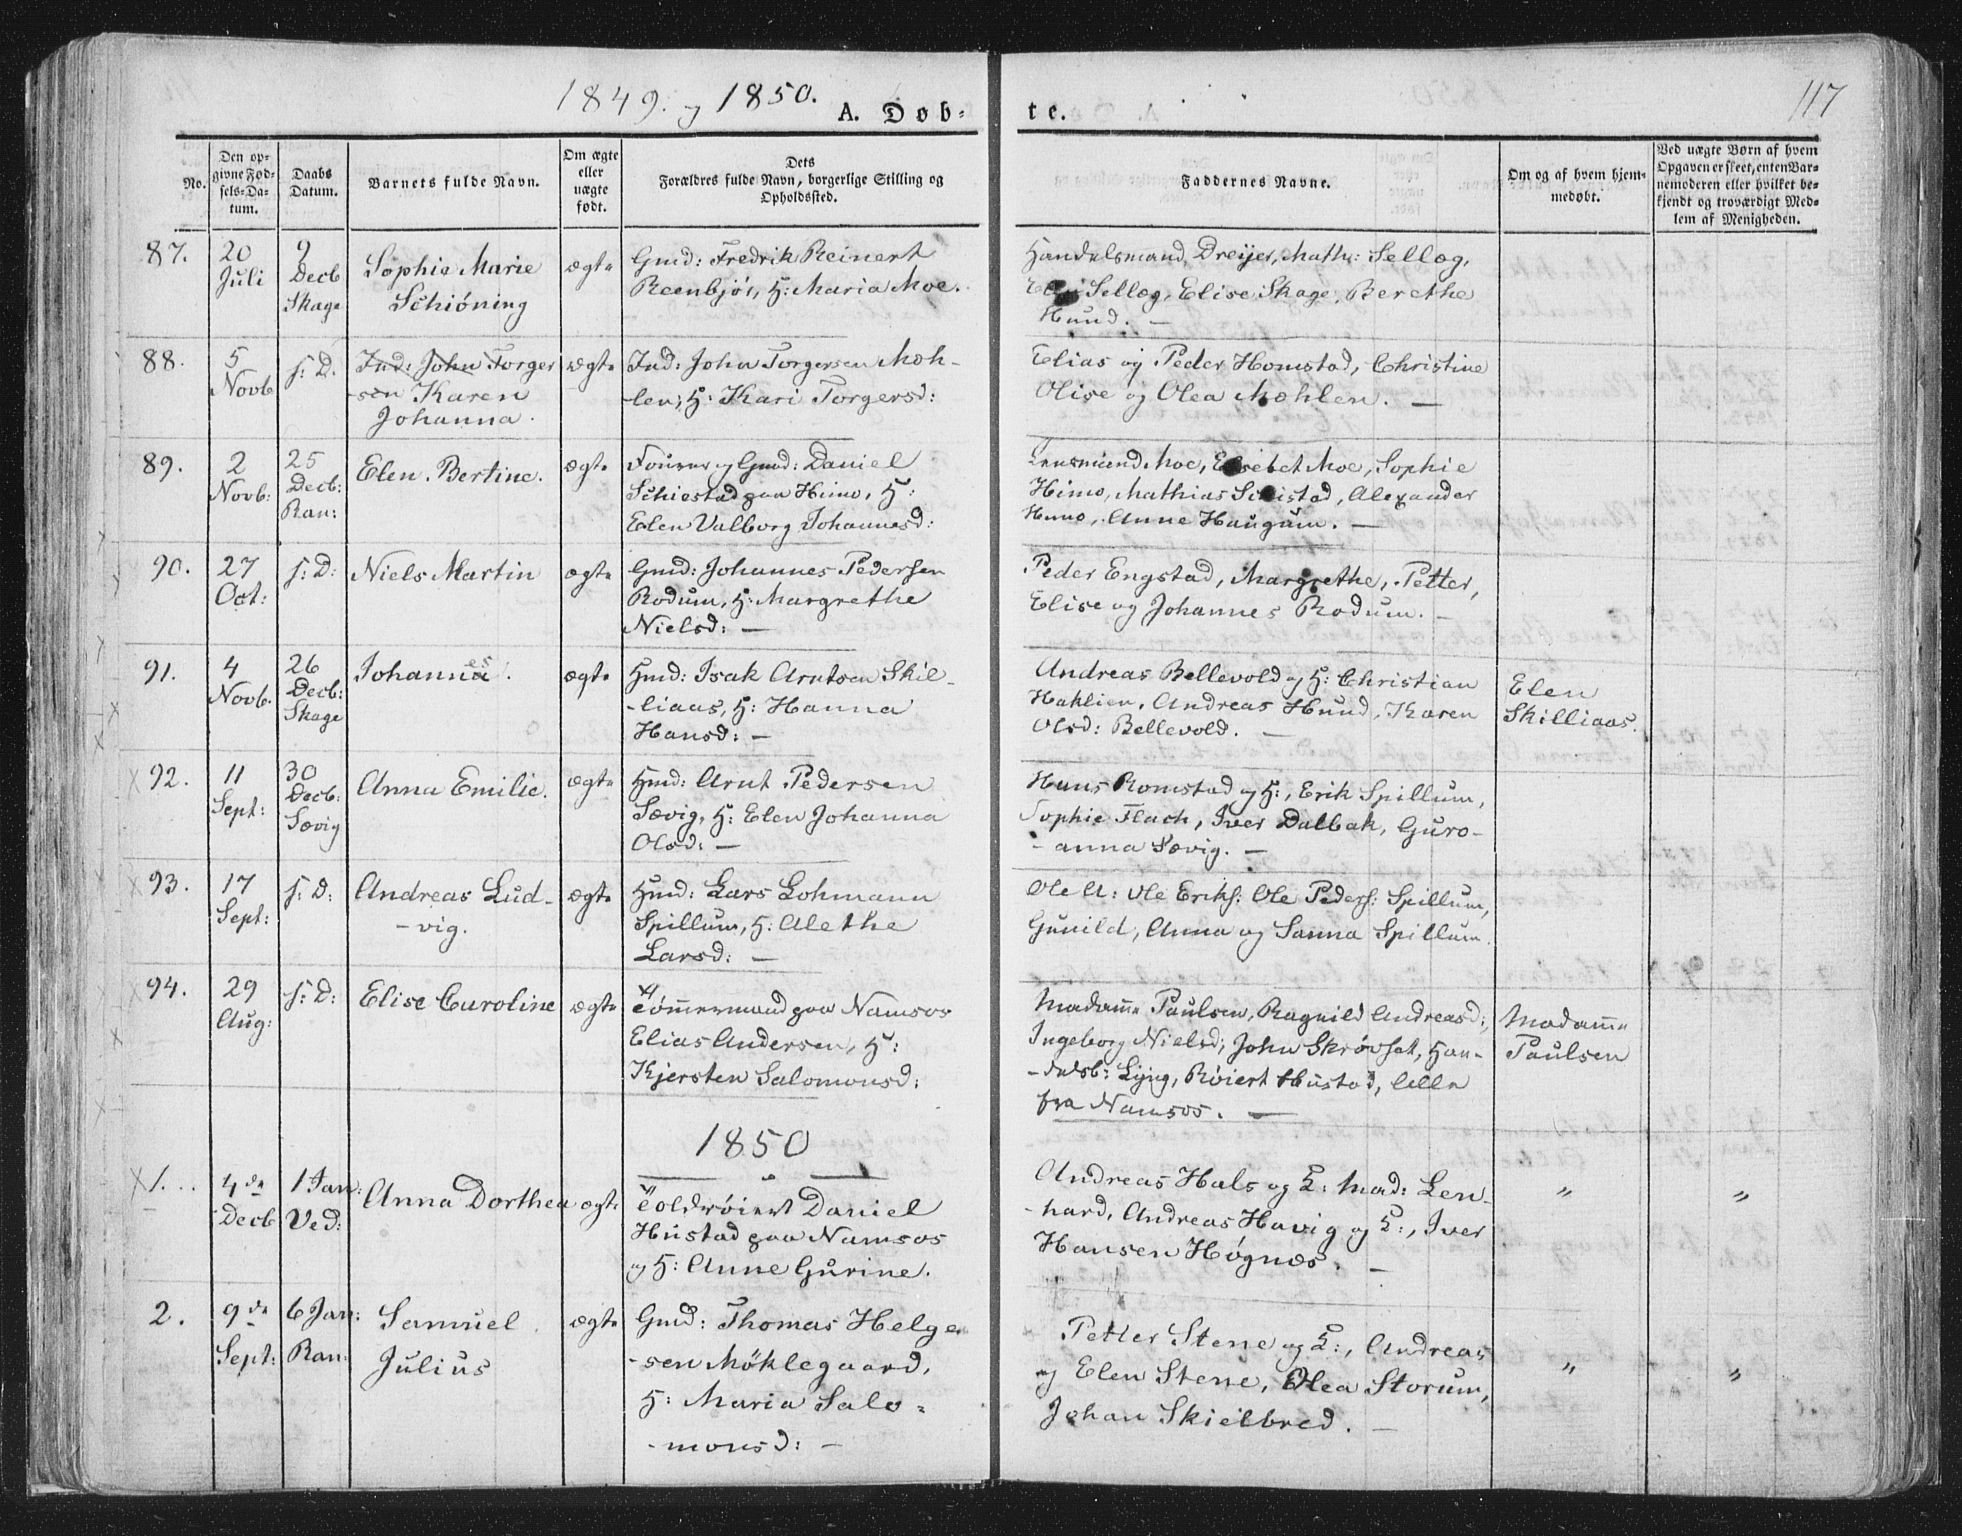 1849. og 1850.
A. Døb-
te.
117
No.
Den op-
givne Fød-
sels-Da-
tum.
Daabs
Datum.
Barnets fulde Navn.
Om ægte
eller
uægte
født.
Dets
Forældres fulde Navn, borgerlige Stilling og
Opholdssted.
Faddernes Navne.
Om og af hvem hjem-
medøbt.
Ved uægte Børn af hvem
Opgaven er skeet, enten Bar-
nemoderen eller hvilket be-
kjendt og troværdigt Med-
lem af Menigheden.
87.
20
Juli
9
Decb
Skage
Sophie Marie
Schiöning
ægte
Gmd: Fredrik Reinert
Reenbjør, H: Maria Moe.
Handelsmand Dreijer, Math: Sellæg,
Sellæg, Elise Skage, Berethe
Hund. —
88.
5
Novb
s: D.
Ind: John Torger
-sen Karen
Johanna.
ægte
Ind: John Torgersen Moh-
-len, H: Kari Torgersd:
Elias og Peder Homstad, Christine
Olise og Olea Mohlen. —
89.
2
Novb:
25
Decb:
Ran:
Elen Bertine.
ægte
Fourer og Gmd: Daniel
Schiestad paa Himo, H:
Elen Valborg Johannesd:
Lensmand Moe, Elsebet Moe, Sophie
Himo, Mathias Scistad, Alexander
Himo, Anne Haugum. —
90.
27
Oct:
s: D:
Niels Martin
ægte
Gmd: Johannes Pedersen
Rodum, H: Margrethe
Nielsd: —
Peder Engstad, Margrethe, Petter,
Elise og Johannes Rodum. —
91.
4
Novb.
26
Decb:
Skage
Johannes.
ægte
Hmd: Isak Arntsen Skil-
-liaas, H: Hanna
Hansd: —
Andreas Bellevold og H: Christian
Haklien, Andreas Hund, Karen
Olsd: Bellevold. —
Elen
Skilliaas.
92.
11
Sept:
30
Decb:
Sævig
Anna Emilie.
ægte
Hmd: Arnt Pedersen
Sævig, H: Elen Johanna
Olsd: —
Hans Romstad og H:, Erik Spillum,
Sophie Flach, Iver Dalbak, Guro-
- anna Sævig. —
93.
17
Sept:
s: D:
Andreas Lud-
- vig.
ægte
Hmd: Lars Lohmann
Spillum, H: Alethe
Larsd: —
Ole A: Ole Eriks: Ole Peders: Spillum,
Gunild, Anna og Sanna Spillum.
94.
29
Aug:
s: D:
Elise Caroline
ægte
Tömmermand paa Namsos
Elias Andersen, H:
Kjersten Salomonsd:
Madame Paulsen, Ragnild Andreasd:,
Ingeborg Nielsd; John Skrøvset, Han-
-delsb: Lyng, Røiert Hustad, Alle
fra Namsos. —
Madame
Paulsen
1850
1.
4de
Decb
1 Jan:
Ved:
Anna Dorthea
ægte
Toldrøiert Daniel
Hustad paa Namsos
og H: Anne Gurine.
Andreas Hals og H: Mad: Len-
-hard, Andreas Havig og H:, Iver
Hansen Høgnæs. —
"
"
2.
9de
Sept:
6 Jan:
Ran:
Samuel
Julius
ægte
Gmd: Thomas Helge-
-sen Möklegaard,
H: Maria Salo-
-monsd: —
Petter Stene og H:, Andreas
og Elen Stene, Olea Storum,
Johan Skielbred. —
"
"